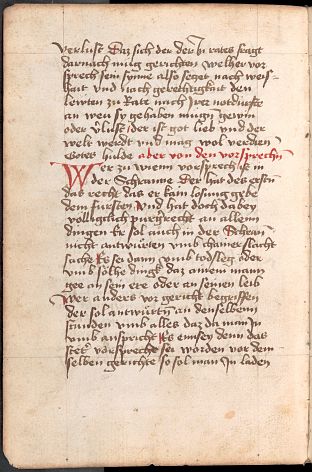 verlust Daz sich der der In rates fragt
darnach mug gerichten Welher vor
sprech sein synne also seget nach weys-
hait vnd nach gerechtigkait den
lewten zu Rate nach Irer notdurfte
an wen sy gehaben mugn gewin
oder vlust der ist got lieb vnd der
welt werdt vnd mag wol verdien
Gotes hulde aber von den vorsprechn
Wer zu weim vorsprech ist in
der Schranne der hat des erstn
das recht das er kain losung gebe
dem fursten Vnd hat doch dabey
volligclich purgkrecht an allenn
dingen Er sol auch in der Schran
nicht antwurten vmb chamerslacht
sache Es sei dann vmb todsleg oder
vmb solhe dingk daz ainem mann
gee an sein ere oder an seinen leib
Wer anders vor gericht begriffen
der sol antwurtn an denselbenn
stunden vmb alles daz da man In
vmb anspricht Es ensey denn das
stet vorsprechn sei worden vor dem
selben gerichte so sol man In laden